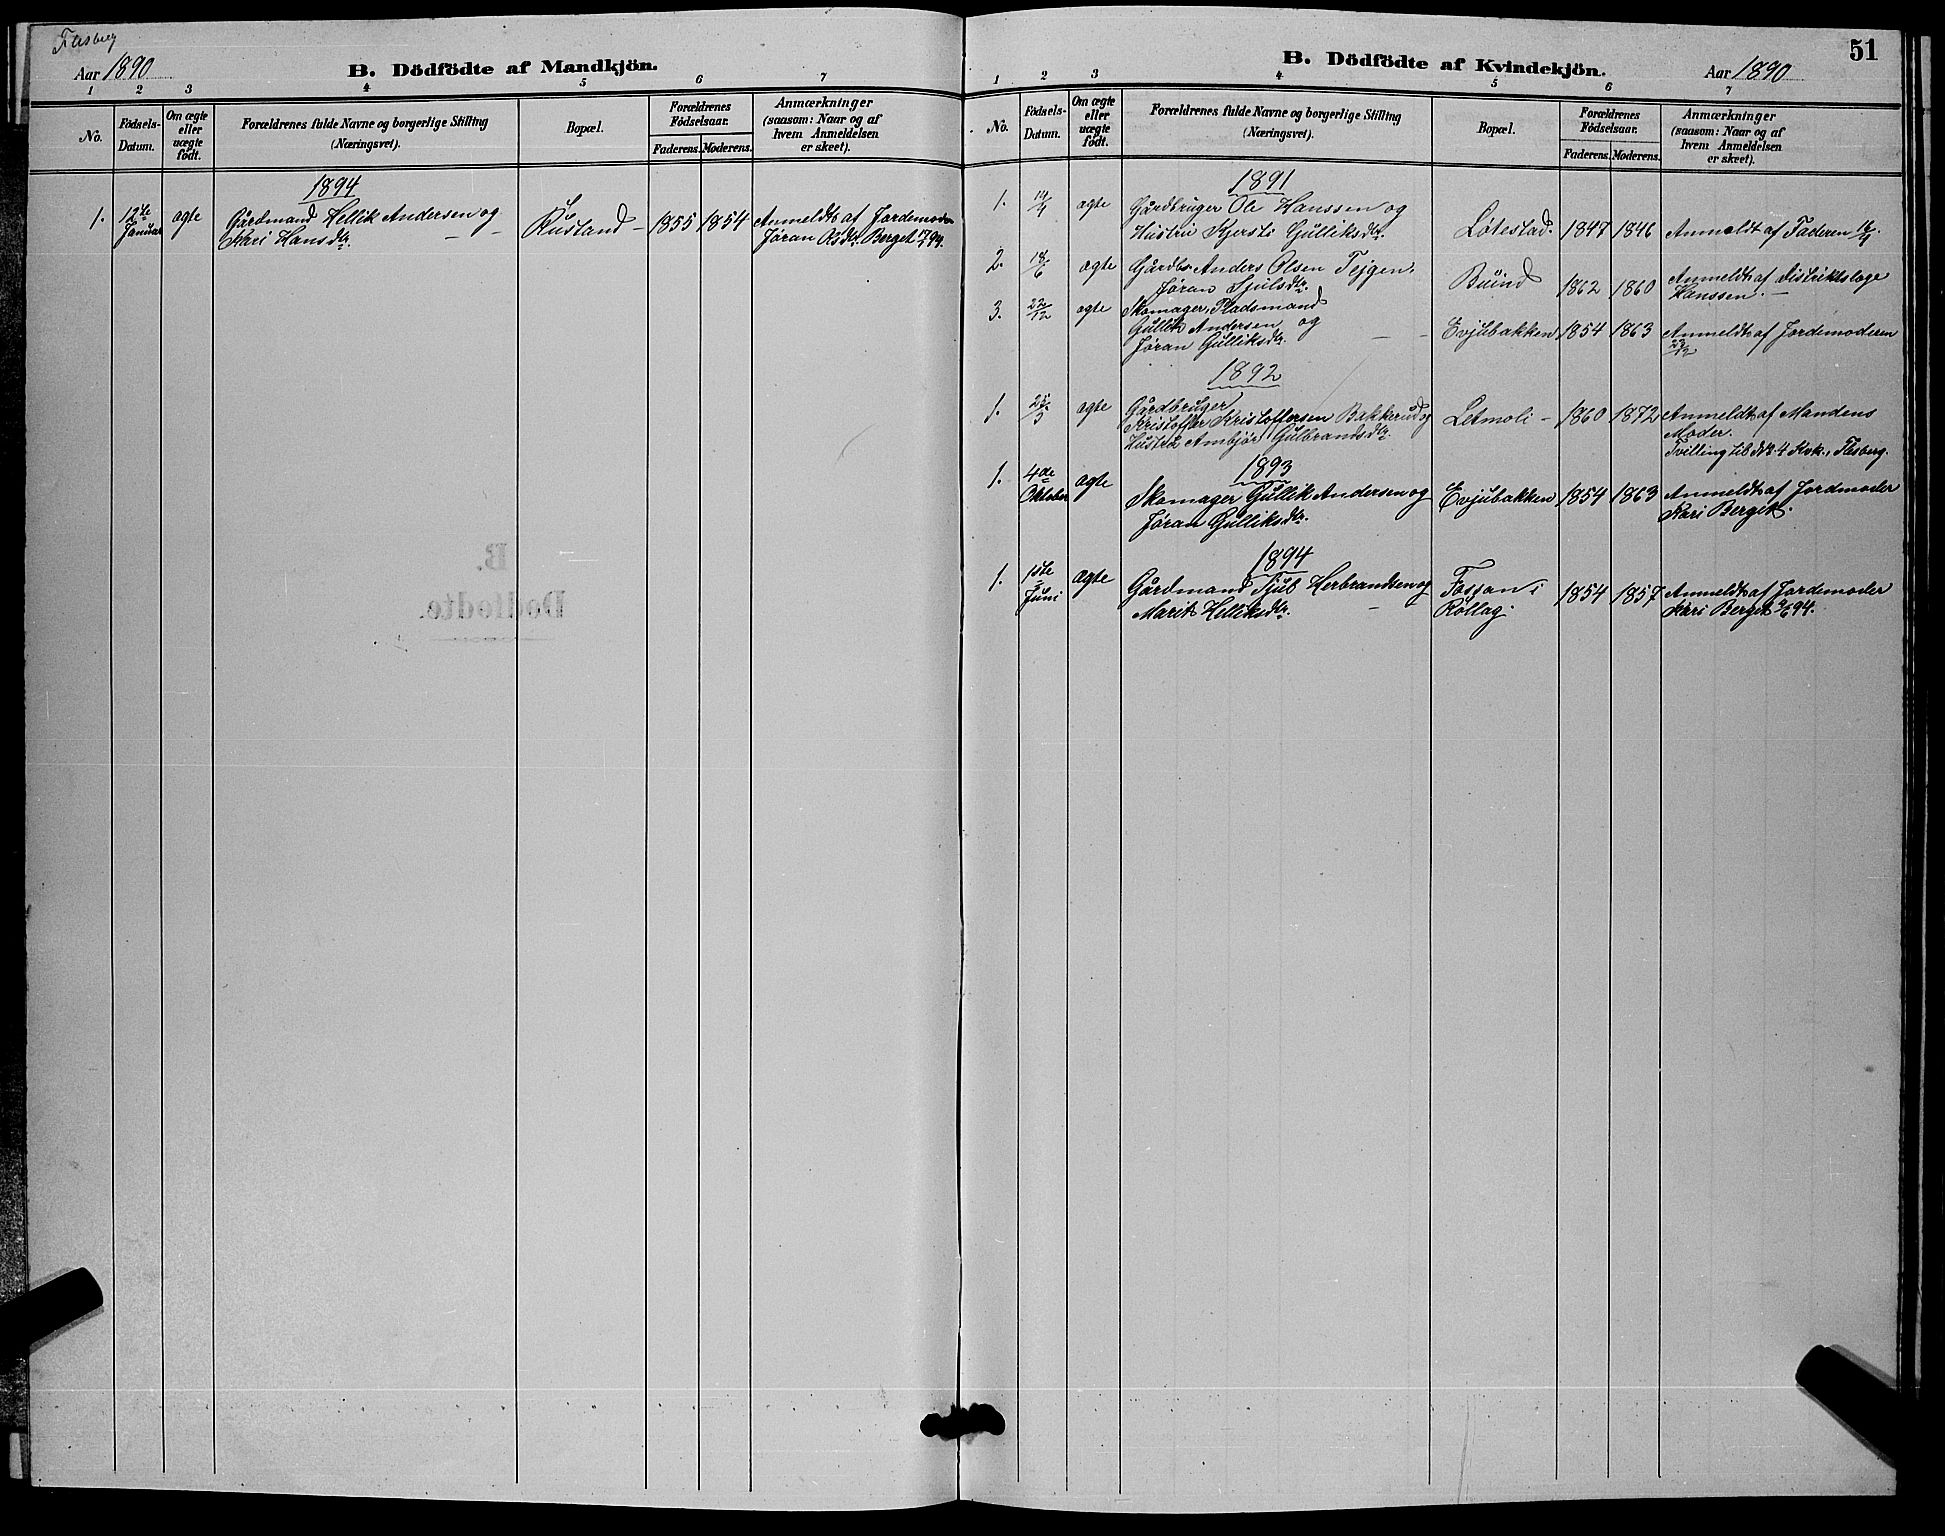 Flesberg
Aar 1890
B. Dödfödte af Mandkjön.
1 2 3 4 5 6 7
No.
Födsels-
Datum.
Om ægte
eller
uægte
födt.
Forældrenes fulde Navne og borgerlige Stilling
(Næringsvei).
Bopæl.
Forældrenes
Födselsaar.
Faderens. Moderens.
Anmærkninger
(saasom: Naar og af
hvem Anmeldelsen
er skeet).
1894
1. 12te Januar ægte Gårdmand Hellik Andersen og
Kari Hansdtr. — —
Rustad — 1855 1854 Anmeldt af Jordemoder
Jøran Berget 94.
B.
Dødfødte.
51
B. Dödfödte af Kvindekjön.
Aar 1890
1 2 3 4 5 6 7
No.
Födsels-
Datum.
Om ægte
eller
uægte
födt.
Forældrenes fulde Navne og borgerlige Stilling
(Næringsvei).
Bopæl.
Forældrenes
Födselsaar.
Faderens. Moderens.
Anmærkninger
(saasom: Naar og af
hvem Anmeldelsen
er skeet).
1891
1. 14/4 ægte Gårdbruger Ole Hanssen og
Hustru Kjersti Gulliksdtr.
Løtestad. 1847 1846 Anmeldt af Faderen 16/4.
2. 18/6 ægte Gårdbr. Anders Olsen Tejgen.
Jøran Sjulsdtr.
Buind 1862 1860 Anmeldt af Distriktslæge
Hanssen. —
3. 22/12 ægte Skomager, Pladsmand
Gullik Andersen og
Jøran Gulliksdtr. — —
Evjubakken 1854 1863 Anmeldt af Jordemoderen
22/12
1892
1. 25/3 ægte Gårdbruger
Kristoffer Kristoffersen Bakkerud og
Hustru Ambjør Gulbrandsdtr.
Letmoli — 1860 1872 Anmeldt af Mandens
Moder.
Tvilling til No 4 Kvk., Flesberg.
1893
1. 4de Oktober ægte Skomager Gullik Andersen og
Jøran Gulliksdtr.
Evjubakken 1854 1863 Anmeldt af Jordmoder
Kari Berget.
1894
1. 1ste Juni ægte Gårdmand Tjul Herbrandsen og
Marit Helliksdtr. —
Fossan i
Rollag. 1854 1857 Anmeldt af Jordemoder
Kari Berget 94.